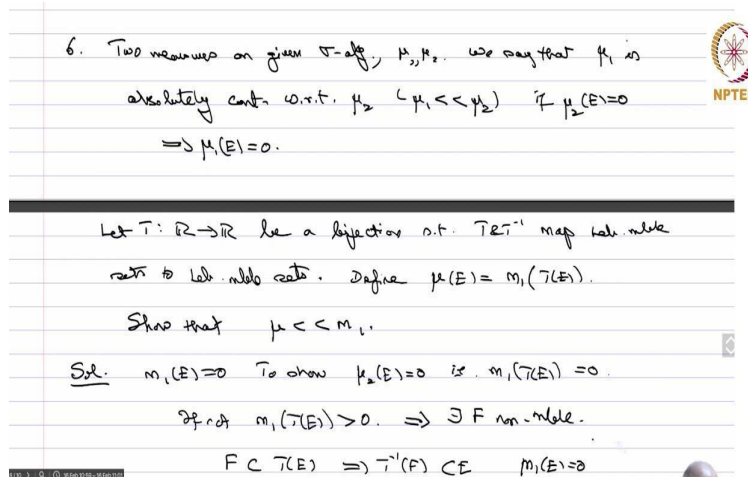 6. Two measures on given σ-alg., μ₁, μ₂. We say that μ₁ is
NPTE
absolutely cont. w.r.t. μ₂ (μ₁ << μ₂) if μ₂(E)=0
=> μ₁(E)=0.
Let T: ℝ→ℝ be a bijection s.t. T&T⁻¹ map Leb. mble
sets to Leb. mble sets. Define μ(E) = m₁(T(E)).
Show that μ << m₁.
Sol. m₁(E)=0 To show μ₂(E)=0 ie. m₁(T(E))=0.
If not m₁(T(E))>0. => ∃ F non-mble.
F ⊂ T(E) => T⁻¹(F) ⊂ E m₁(E)=0